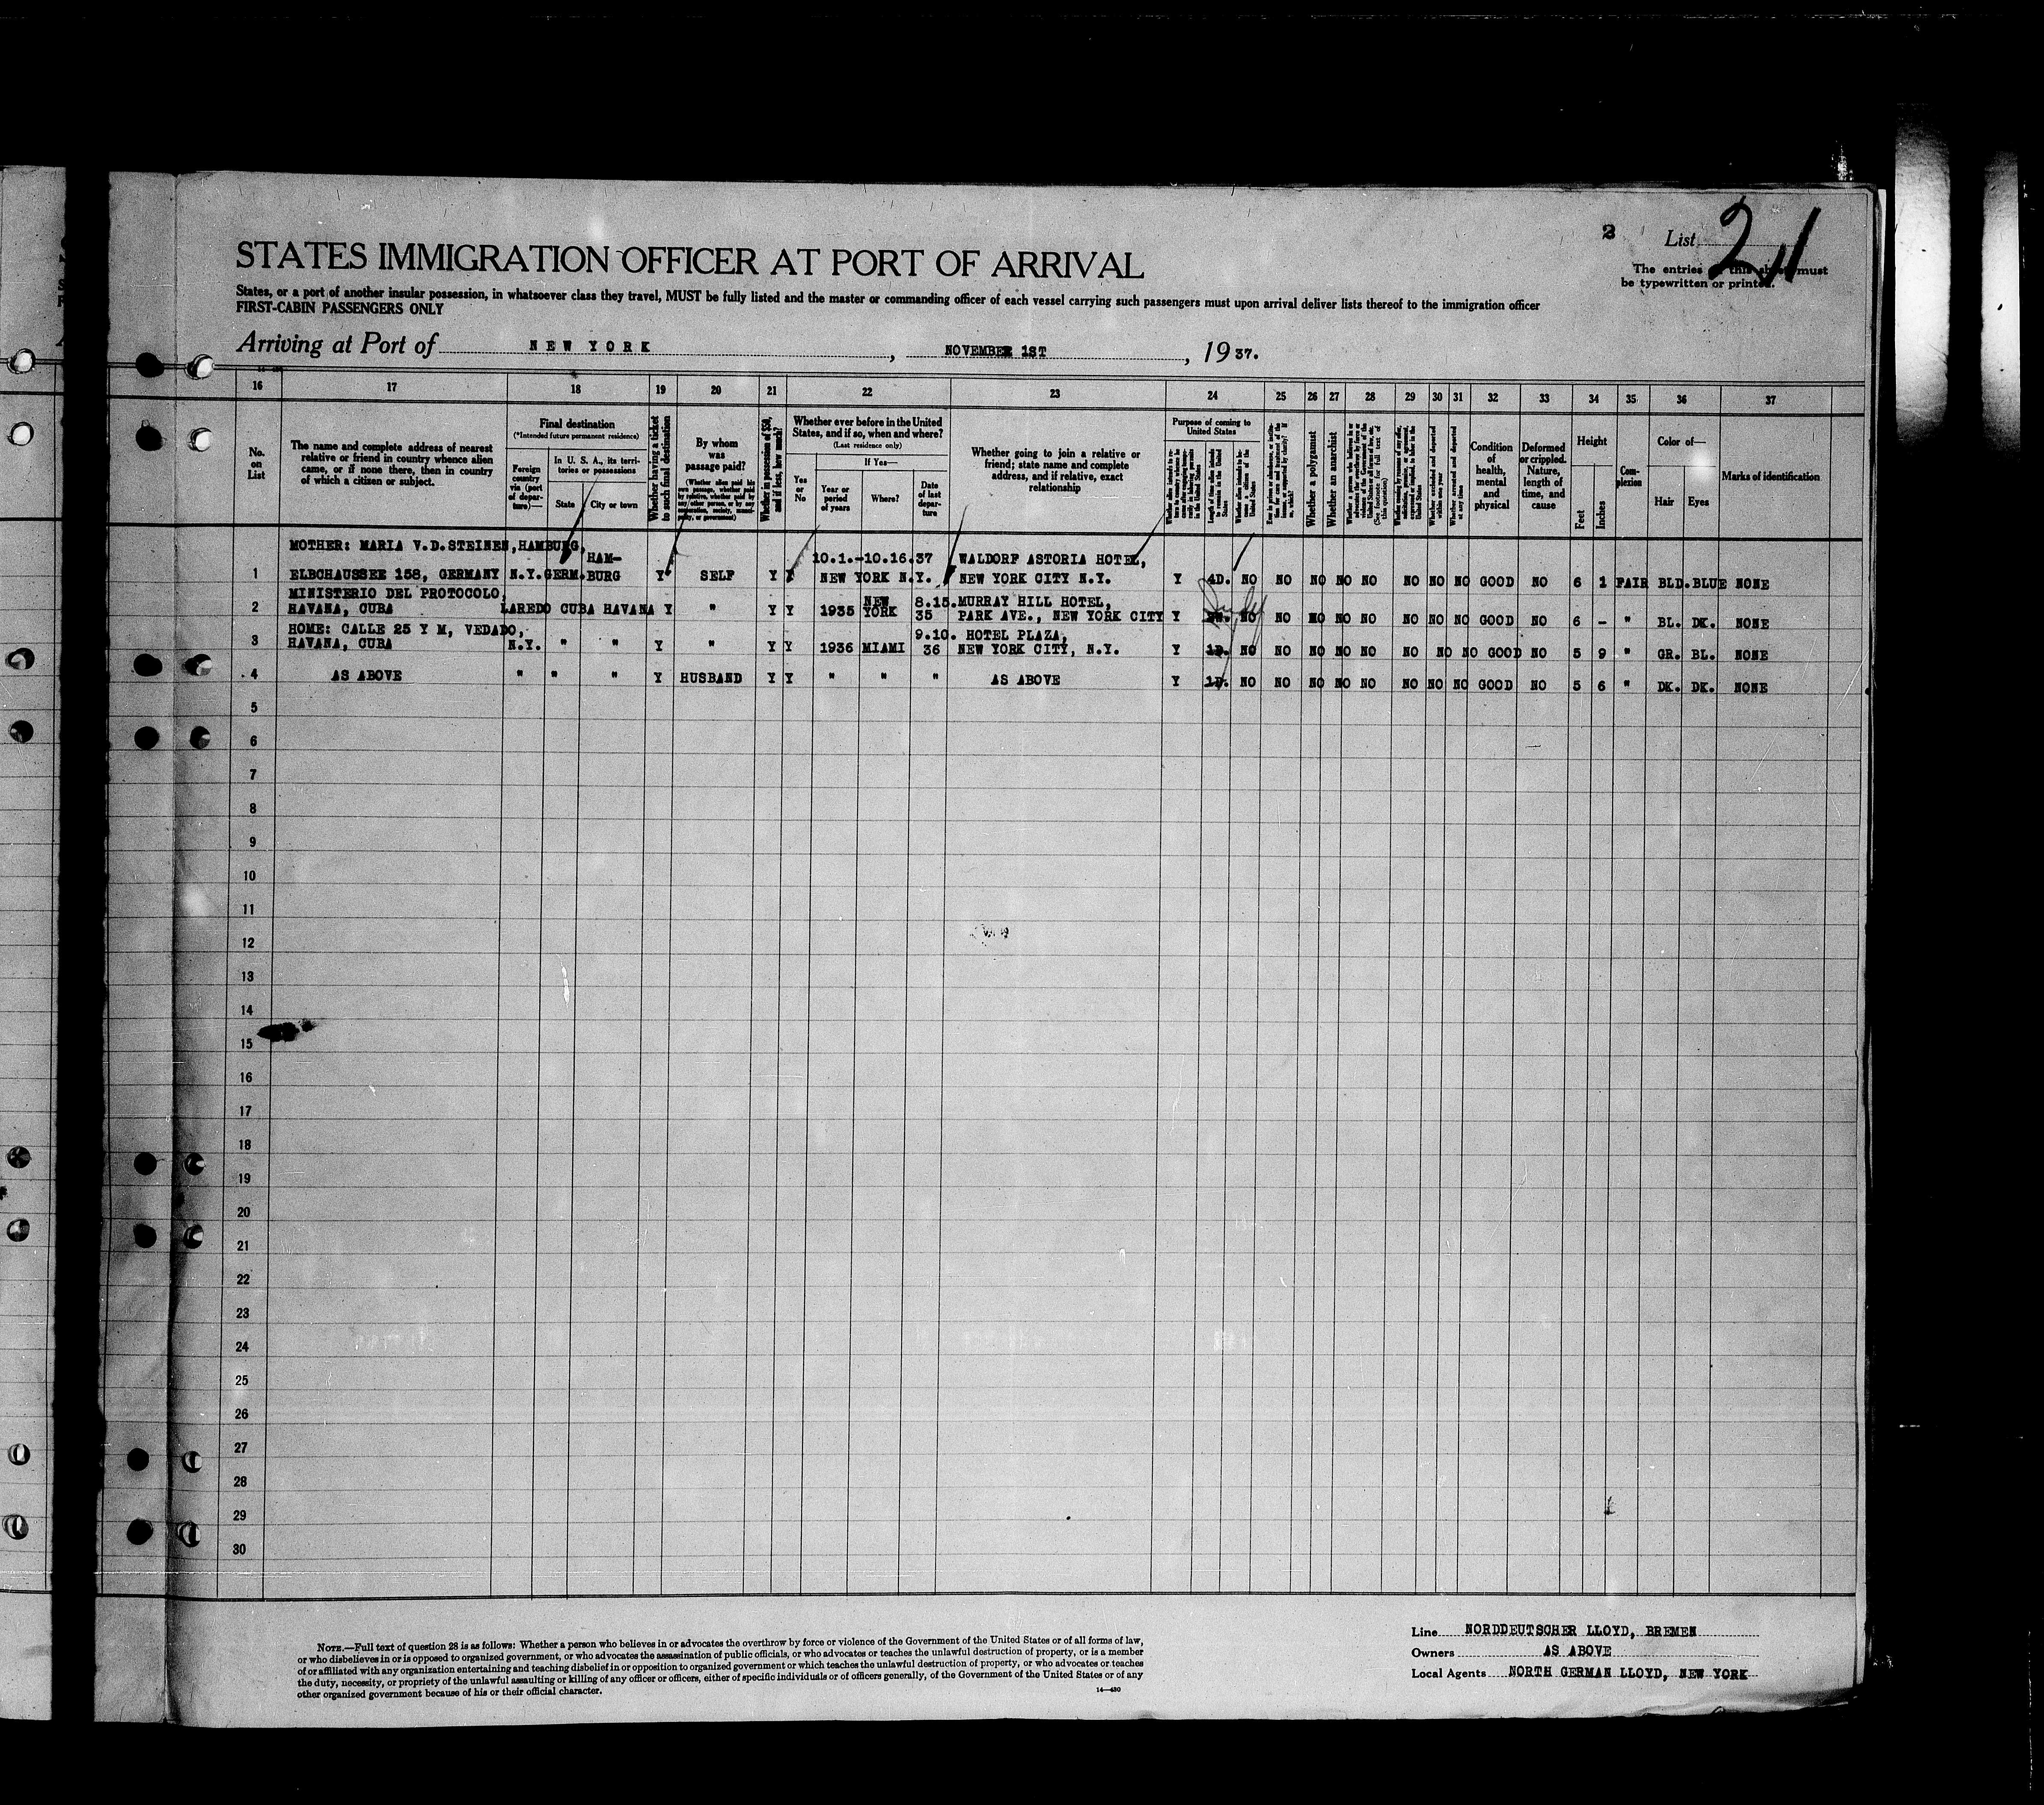 2
List 2 11
STATES IMMIGRATION OFFICER AT PORT OF ARRIVAL
The entries this sheet must
be typewritten or printed.
States, or a port of another insular possession, in whatsoever class they travel, MUST be fully listed and the master or commanding officer of each vessel carrying such passengers must upon arrival deliver lists thereof to the immigration officer
FIRST-CABIN PASSENGERS ONLY
Arriving at Port of NEW YORK, NOVEMBER 1ST, 1937.
16 17 18 19 20 21 22 23 24 25 26 27 28 29 30 31 32 33 34 35 36 37
No. on List
The name and complete address of nearest
relative or friend in country whence alien
came, or if none there, then in country
of which a citizen or subject.
Final destination
(*Intended future permanent residence)
Foreign country via (port of departure)—
In U. S. A., its territories or possessions
State
City or town
Whether having a ticket to such final destination
By whom was passage paid?
(Whether alien paid his own passage, whether paid by relative, whether paid by any other person, or by any corporation, society, municipality, or government)
Whether in possession of $50, and if less, how much?
Whether ever before in the United
States, and if so, when and where?
(Last residence only)
Yes or No
If Yes—
Year or period of years
Where?
Date of last departure
Whether going to join a relative or
friend; state name and complete
address, and if relative, exact
relationship
Purpose of coming to United States
Length of time alien intends to remain in the United States
Whether a polygamist
Whether an anarchist
Condition of health, mental and physical
Deformed or crippled. Nature, length of time, and cause
Height
Feet
Inches
Complexion
Color of—
Hair
Eyes
Marks of identification
MOTHER: MARIA V.D.STEINEN, HAMBURG, HAM- 10.1.-10.16.37 WALDORF ASTORIA HOTEL,
1 ELBCHAUSSEE 158, GERMANY N.Y. GERM. BURG Y SELF Y Y NEW YORK N.Y. NEW YORK CITY N.Y. Y 4D. NO NO NO NO NO NO NO NO GOOD NO 6 1 FAIR BLD. BLUE NONE
MINISTERIO DEL PROTOCOLO, NEW 8.15. MURRAY HILL HOTEL,
2 HAVANA, CUBA LAREDO CUBA HAVANA Y " Y Y 1935 YORK 35 PARK AVE., NEW YORK CITY Y NO NO NO NO NO NO NO NO GOOD NO 6 - " BL. DK. NONE
HOME: CALLE 25 Y M, VEDADO, 9.10. HOTEL PLAZA,
3 HAVANA, CUBA N.Y. " " Y " Y Y 1936 MIAMI 36 NEW YORK CITY, N.Y. Y 1D. NO NO NO NO NO NO NO NO GOOD NO 5 9 " GR. BL. NONE
4 AS ABOVE " " " Y HUSBAND Y Y " " " AS ABOVE Y 1D. NO NO NO NO NO NO NO NO GOOD NO 5 6 " DK. DK. NONE
5
6
7
8
9
10
11
12
13
14
15
16
17
18
19
20
21
22
23
24
25
26
27
28
29
30
NOTE.—Full text of question 28 is as follows: Whether a person who believes in or advocates the overthrow by force or violence of the Government of the United States or of all forms of law,
or who disbelieves in or is opposed to organized government, or who advocates the assassination of public officials, or who advocates or teaches the unlawful destruction of property, or is a member
of or affiliated with any organization entertaining and teaching disbelief in or opposition to organized government or which teaches the unlawful destruction of property, or who advocates or teaches
the duty, necessity, or propriety of the unlawful assaulting or killing of any officer or officers, either of specific individuals or of officers generally, of the Government of the United States or of any
other organized government because of his or their official character.
14—430
Line NORDDEUTSCHER LLOYD, BREMEN
Owners AS ABOVE
Local Agents NORTH GERMAN LLOYD, NEW YORK